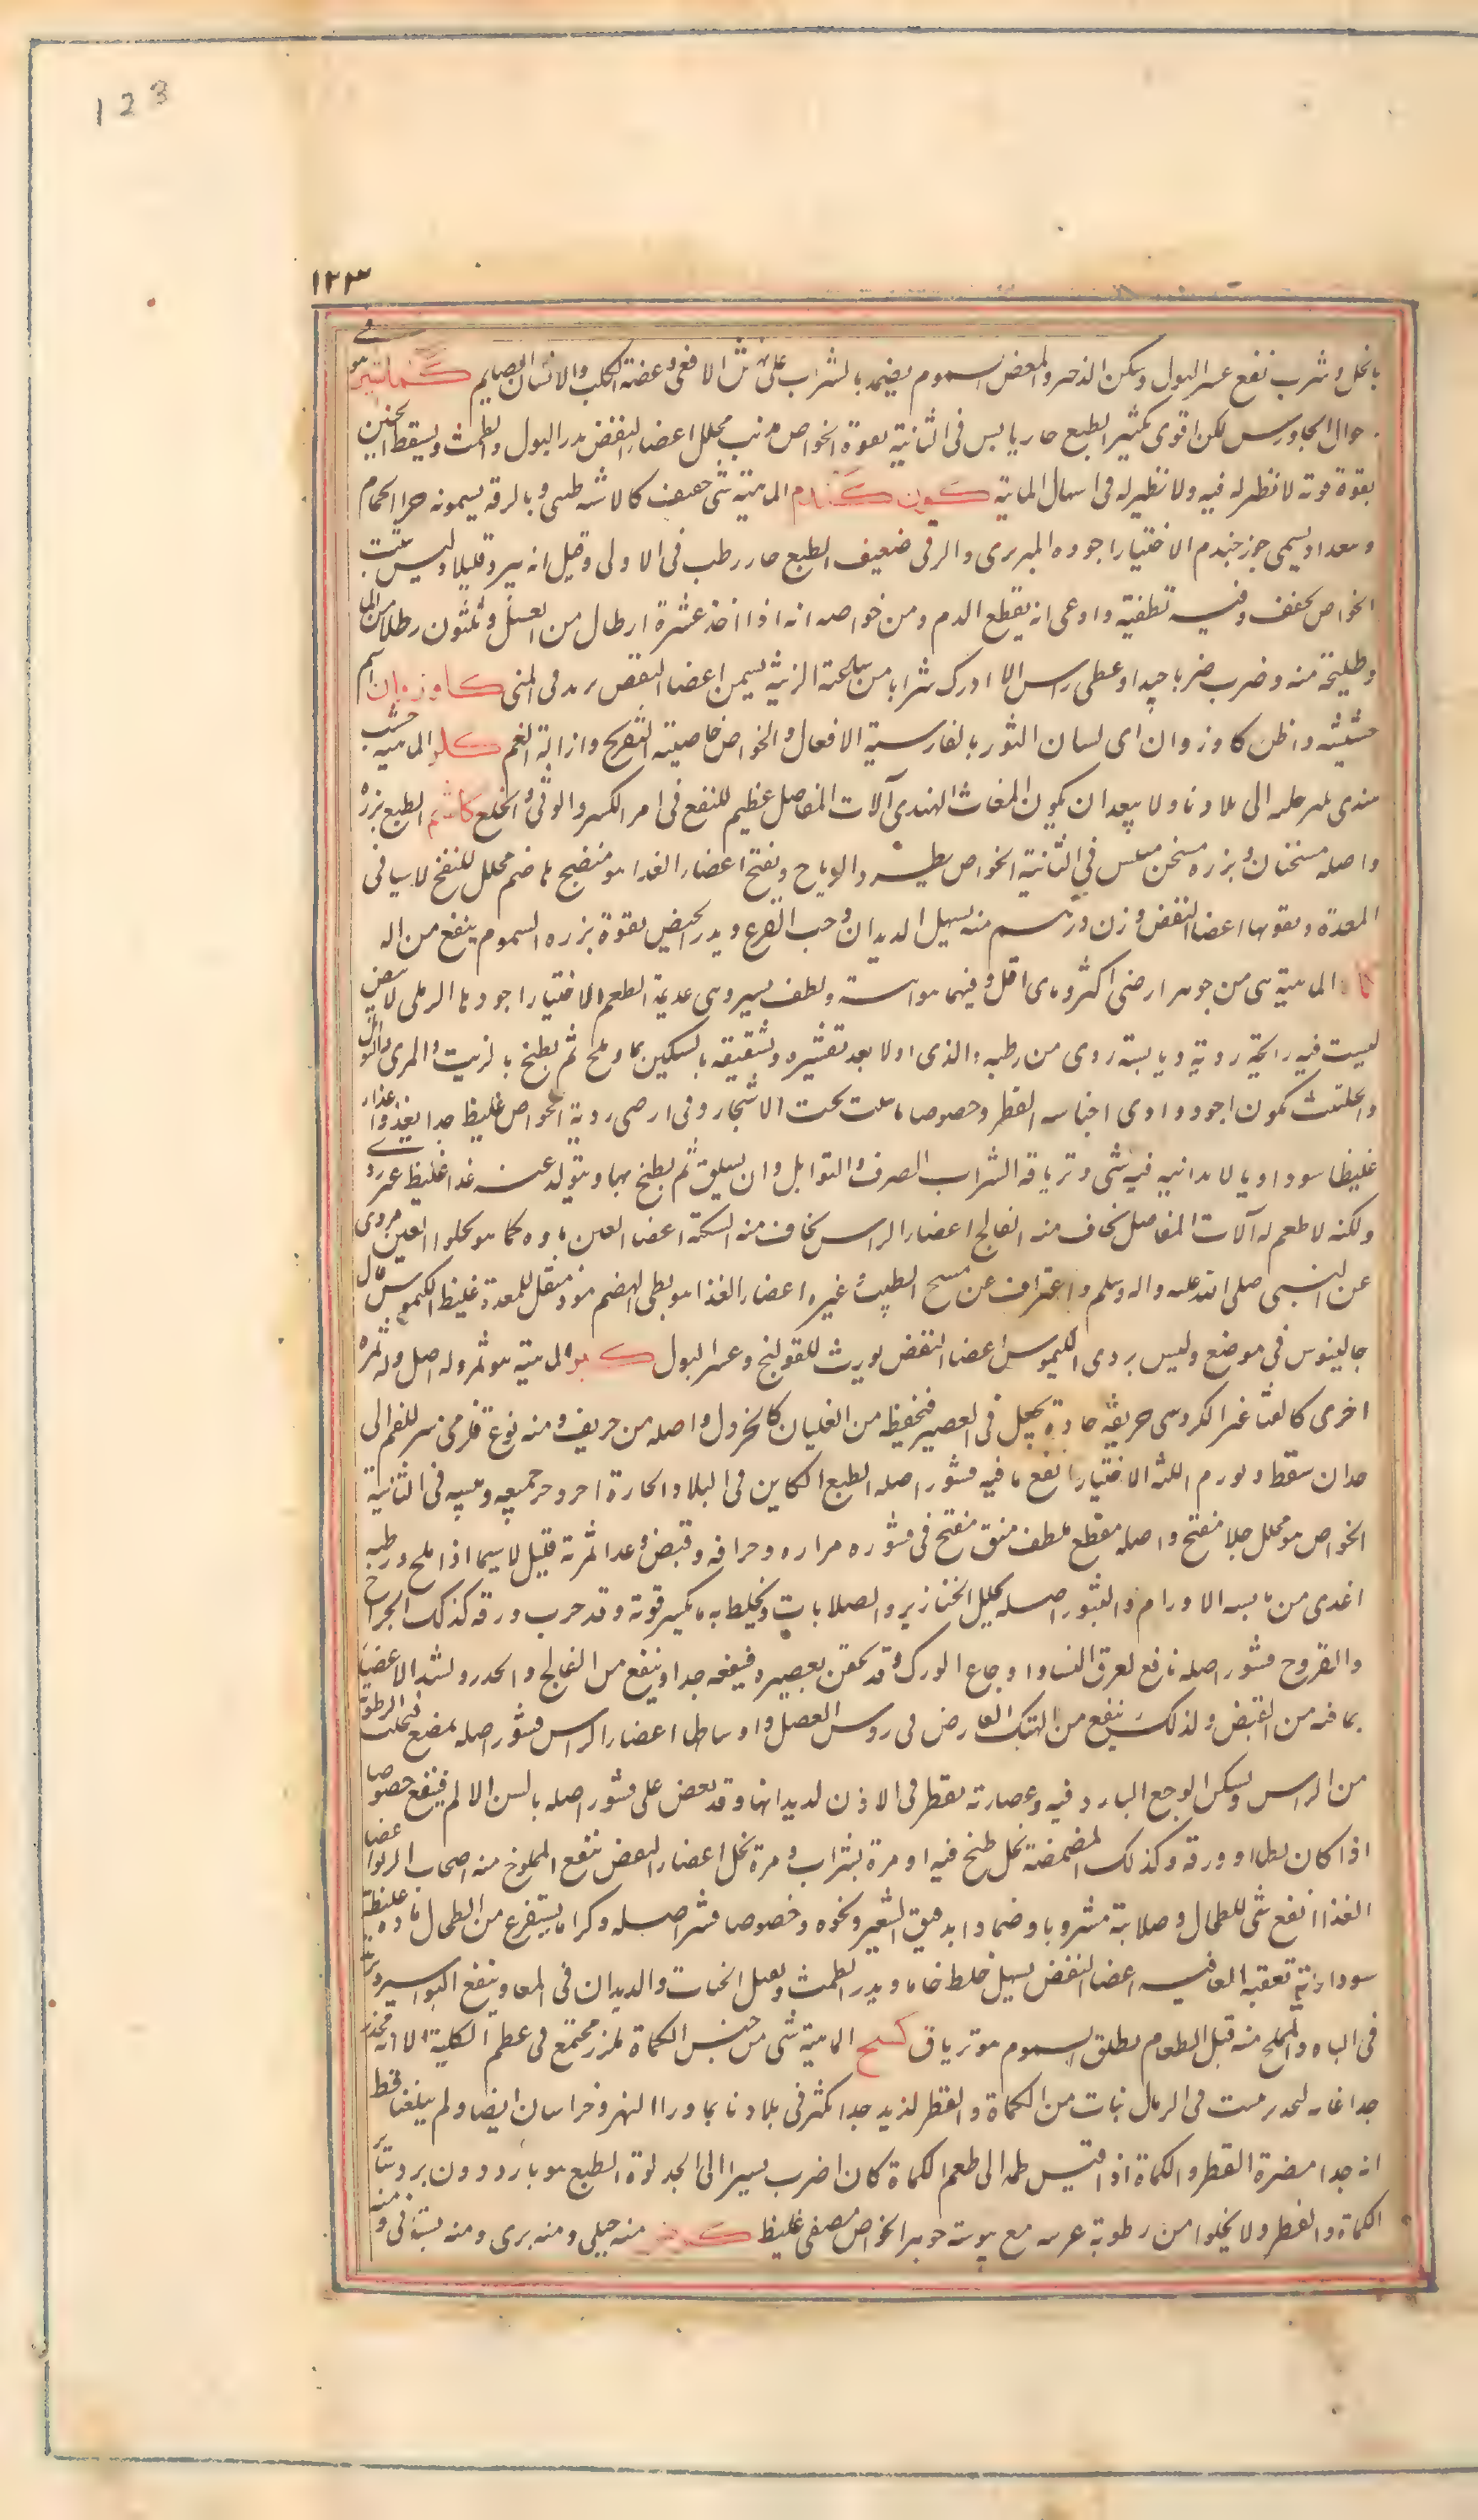 123
١٢٣
بالخل وشرب نفع عسر البول وسكن الذحير والمغص السموم يضمد بالشراب على نهش الافعى وعضة الكلب والانسان الصايم كماشير هو في
احوال الجاورس لكن اقوى بكثير الطبع حار يابس في الثانية بقوة الخواص مذيب محلل اعضاء النفض يدر البول والطمث ويسقط الجنين
بقوة قوته لا نظير له فيه ولا نظير له في اسهال الماية كون كندم الماهية شى خفيف كالاشنه طبى وبالرقه يسمونه خرا الحمام
وببغداد يسمى جوز جندم الاختيار اجوده البربرى والرقى ضعيف الطبع حار رطب في الاولى وقيل انه يبرد قليلا وليس بثبت
الخواص يجفف وفيه تطفية وادعى انه يقطع الدم ومن خواصه انه اذا اخذ عشرة ارطال من العسل وثلثون رطلا من الماء
وطليخة منه وضرب ضربا جيدا وغطى راس الاناء ادرك شرابا من ساعته الزينه يسمن اعضاء النفض يزيد في المنى كاوزوان اسم
حشيشه واظن كاوزوان اى لسان الثور بالفارسية الافعال والخواص خاصيته التفريح وازالة الغم كلو الماهية خشب
هندى يحمل الى بلادنا ولا يبعد ان يكون المغاث الهندى آلات المفاصل عظيم للنفع في امر الكسر والوثى والخلع كاشم الطبع بزره
واصله مسخنان وبزره مسخن ميبس في الثانية الخواص يطرد الرياح ويفتح اعضاء الغذا هو منضج هاضم محلل للنفخ لا سيما في
المعدة ويقويها اعضاء النفض وزن درهم منه يسهل الديدان وحب القرع ويدر الحيض بقوة بزره السموم ينفع من اله
الماهية هى من جوهر ارضى اكثر وماى اقل وفيهما هوائية ولطف يسير وهى عديمة الطعم الاختيار اجودها الرملى الابيض
ليست فيه رايحة ردية ويابسته ردى من رطبه والذى اولا بعد تقشيره وتشقيقه بالسكين بماء وملح ثم يطبخ بالزيت والمرى والتوابل
والحلتيت يكون اجود واردى اجناسه الفطر وخصوصا ما ينبت تحت الاشجار وفى ارضى ردية الخواص غليظ جدا يغذوا غذاء
غليظا سوداويا لا يدانيه فيه شى وترياقه الشراب الصرف والتوابل وان يسلق ثم يطبخ بها ويتولد عنه غذا غليظ غير ردى
ولكنه لا طعم له آلات المفاصل يخاف منه الفالج اعضاء الراس يخاف منه السكته اعضاء العين ماوه كما هو يجلوا العين مروى
عن النبى صلى الله عليه واله وسلم واعتراف عن مسيح الطبيب وغيره اعضاء الغذا هو بطى الهضم موذ مثقل للمعدة غليظ الكيموس قال
جالينوس في موضع وليس بردى الكيموس اعضاء النفض يورث القولنج وعسر البول كبر الماهية هو ثمر وله اصل وله ثمرة
اخرى كالقثا غير الكروسى حريفه حادة تجعل في العصير فتحفظه من الغليان كالخردل واصله مر حريف ومنه نوع قلزمى مبثر للفم الى
حد ان ينفط ويورم اللثه الاختيار انفع ما فيه قشور اصله الطبع الكاين في البلاد الحارة احر وحر جميعه ويبسه في الثانية
الخواص هو محلل جلا مفتح واصله مقطع ملطف منق مفتح في قشوره مراره وحرافه وقبض وغدا ثمرته قليل لا سيما اذا ملح ورطبه
اغذى من يابسه الاورام والبثور اصله يحلل الخنازير والصلابات ويخلط به ما يكسر قوته وقد جرب ورقه كذلك الجراح
والقروح قشور اصله نافع لعرق النسا واوجاع الورك وقد يحقن بعصيره فينفعه جدا وينفع من الفالج والخدر ويشد الاعضا
بما فيه من القبض ولذلك ينفع من الهتك العارض في روس العضل واوساطها اعضاء الراس قشور اصله يمضغ فيجلب الرطوبة
من الراس ويسكن الوجع البارد فيه وعصارته يقطر في الاذن لديدانها وقد يعض على قشور اصله بالسن الالم فينفع خصوصا
اذا كان رطبا او ورقه وكذلك المضمضة بخل طبخ فيه او مرة بشراب ومرة بخل اعضاء النفض ينفع المملوح منه اصحاب الربو اعضا
الغذا انفع شى للطحال وصلابته مشروبا وضمادا بدقيق الشعير ونحوه وخصوصا قشر اصله وكثيرا ما يستفرغ من الطحال مادة غليظة
سوداوية تعقبه العافيه اعضاء النفض يسهل خلطا خاما ويدر الطمث ويقتل الحيات والديدان في المعا وينفع البواسير ويزيد
في الباه والمملح منه قبل الطعام يطلق السموم هو ترياق كسح الماهية شى من جنس الكماة ملزز مجتمع في عظم الكلية الا انه مجذر
جدا غاير التحدر ينبت في الرمال نبات من الكماة والفطر لذيذ جدا يكثر في بلادنا بما وراء النهر وخراسان ايضا ولم يبلغنا قط
انه جدا مضرة الفطر والكماة اذا قيس طعمه الى طعم الكماة كان اضرب يسيرا الى الحد لوة الطبع هو بارد دون برد ساير
الكماة والفطر ولا يخلوا من رطوبة غريبه مع يبوسة جوهر الخواص مصفى غليظ كرفس منه جبلى ومنه برى ومنه بستانى ومنه